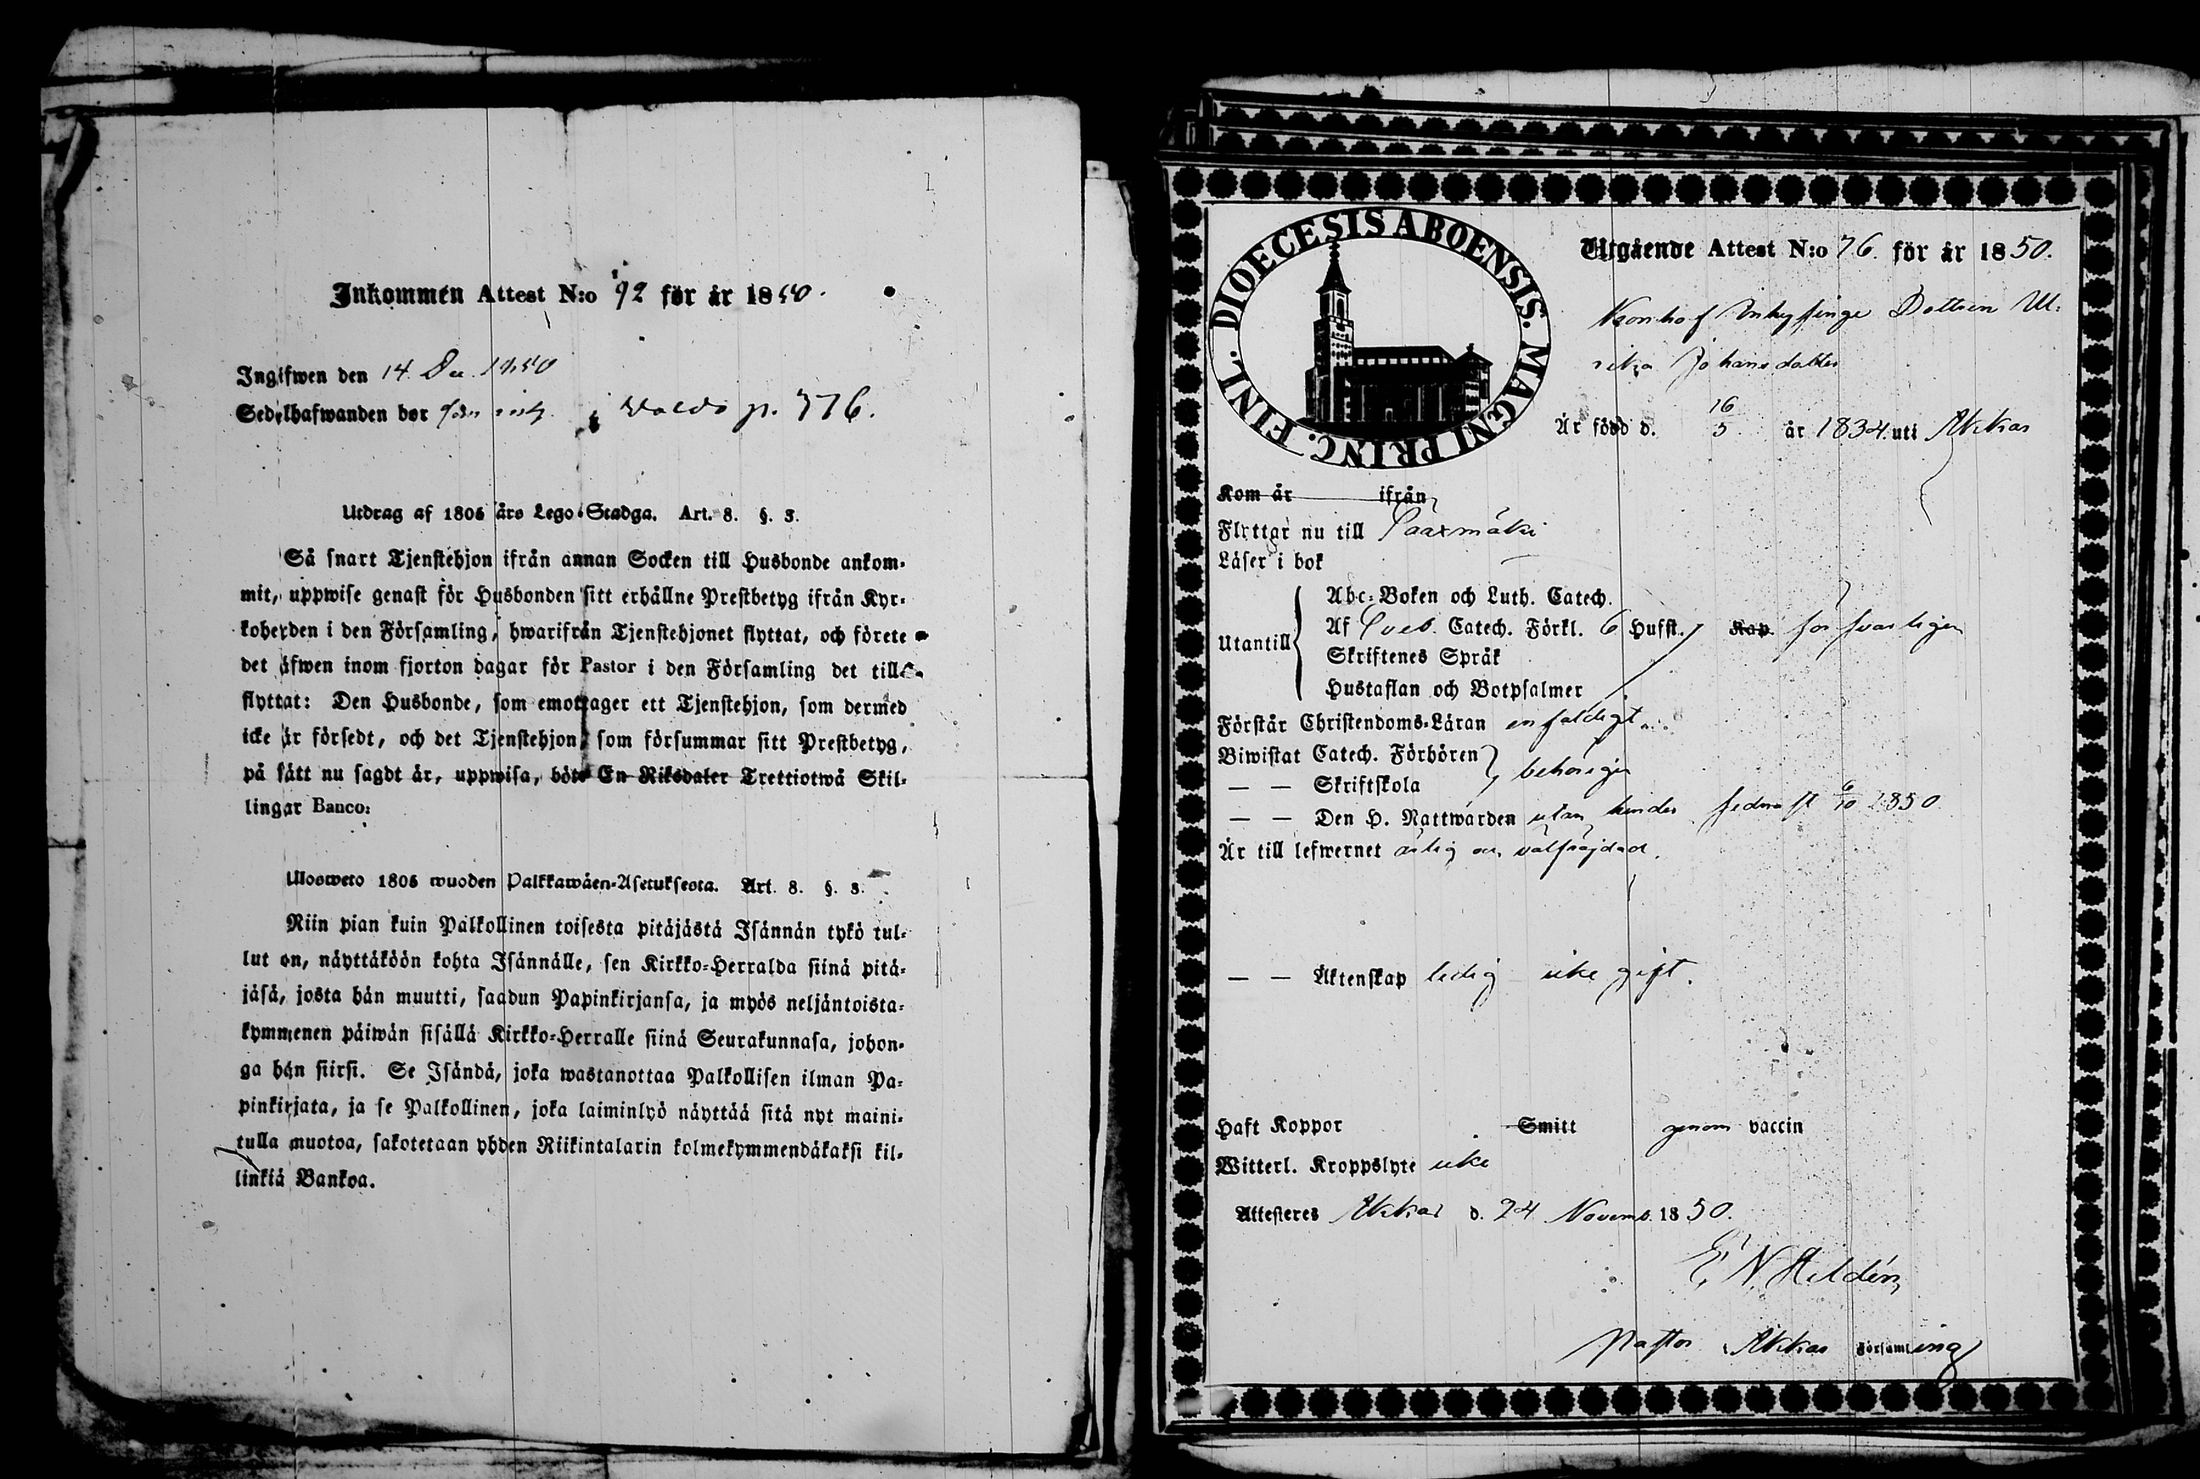 Inkommen Attest N:o 92 för år 1850.
Ingifwen den 14. Dec. 1850
Sedelhafwanden bor i Waldo p. 776.
Utdrag af 1805 års Lego-Stadga. Art. 8. §. 3.
Så snart Tjenstehjon ifrån annan Socken till Husbonde ankom-
mit, uppwise genast för Husbonden sitt erhållne Prestbetyg ifrån Kyr-
koherden i den Församling, hwarifrån Tjenstehjonet flyttat, och förete
det äfwen inom fjorton dagar för Pastor i den Församling det till-
flyttat: Den Husbonde, som emottager ett Tjenstehjon, som dermed
icke är försedt, och det Tjenstehjon, som försummar sitt Prestbetyg,
på sätt nu sagdt är, uppwisa, böte En Riksdaler Trettiotwå Skil-
lingar Banco:
Ulosweto 1805 wuoden Palkkawäen-Asetuksesta. Art. 8. §. 3.
Niin pian kuin Palkollinen toisesta pitäjästä Isännän tykö tul-
lut on, näyttäköön kohta Isännälle, sen Kirkko-Herralda siinä pitä-
jäsä, josta hän muutti, saadun Papinkirjansa, ja myös neljäntoista-
kymmenen päiwän sisällä Kirkko-Herralle siinä Seurakunnasa, johon-
ga hän siirsi. Se Isändä, joka wastanottaa Palkollisen ilman Pa-
pinkirjata, ja se Palkollinen, joka laiminlyö näyttää sitä nyt maini-
tulla muotoa, sakotetaan yhden Riikintalarin kolmekymmendäkaksi kil-
linkiä Bankoa.
DIOECESIS ABOENSIS. MAGNI PRINC. FINL.
Utgående Attest N:o 76. för år 1850.
Dottren Ul-
rika Johansdotter
Är född d. 16/5 år 1834. uti Akkas
Kom år ifrån
Flyttar nu till Saaxmäki
Läser i bok
Abc-Boken och Luth. Catech.
Utantill Af Sveb. Catech. Förkl. 6 Hufst. Kap. försvarligen
Skriftenes Språk
Hustaflan och Botpsalmer
Förstår Christendoms-Läran enfaldigt
Biwistat Catech. Förhören
— — Skriftskola behörigen
— — Den H. Nattwarden utan hinder sednast 6/10 1850
Är till lefwernet ärlig och välfräjdad.
— — Äktenskap ledig icke gift.
Haft Koppor Smitt genom vaccin
Witterl. Kroppslyte icke
Attesteres Akkas d. 24 Novemb. 1850.
E. N. Hildén
Pastor i Akkas Församling